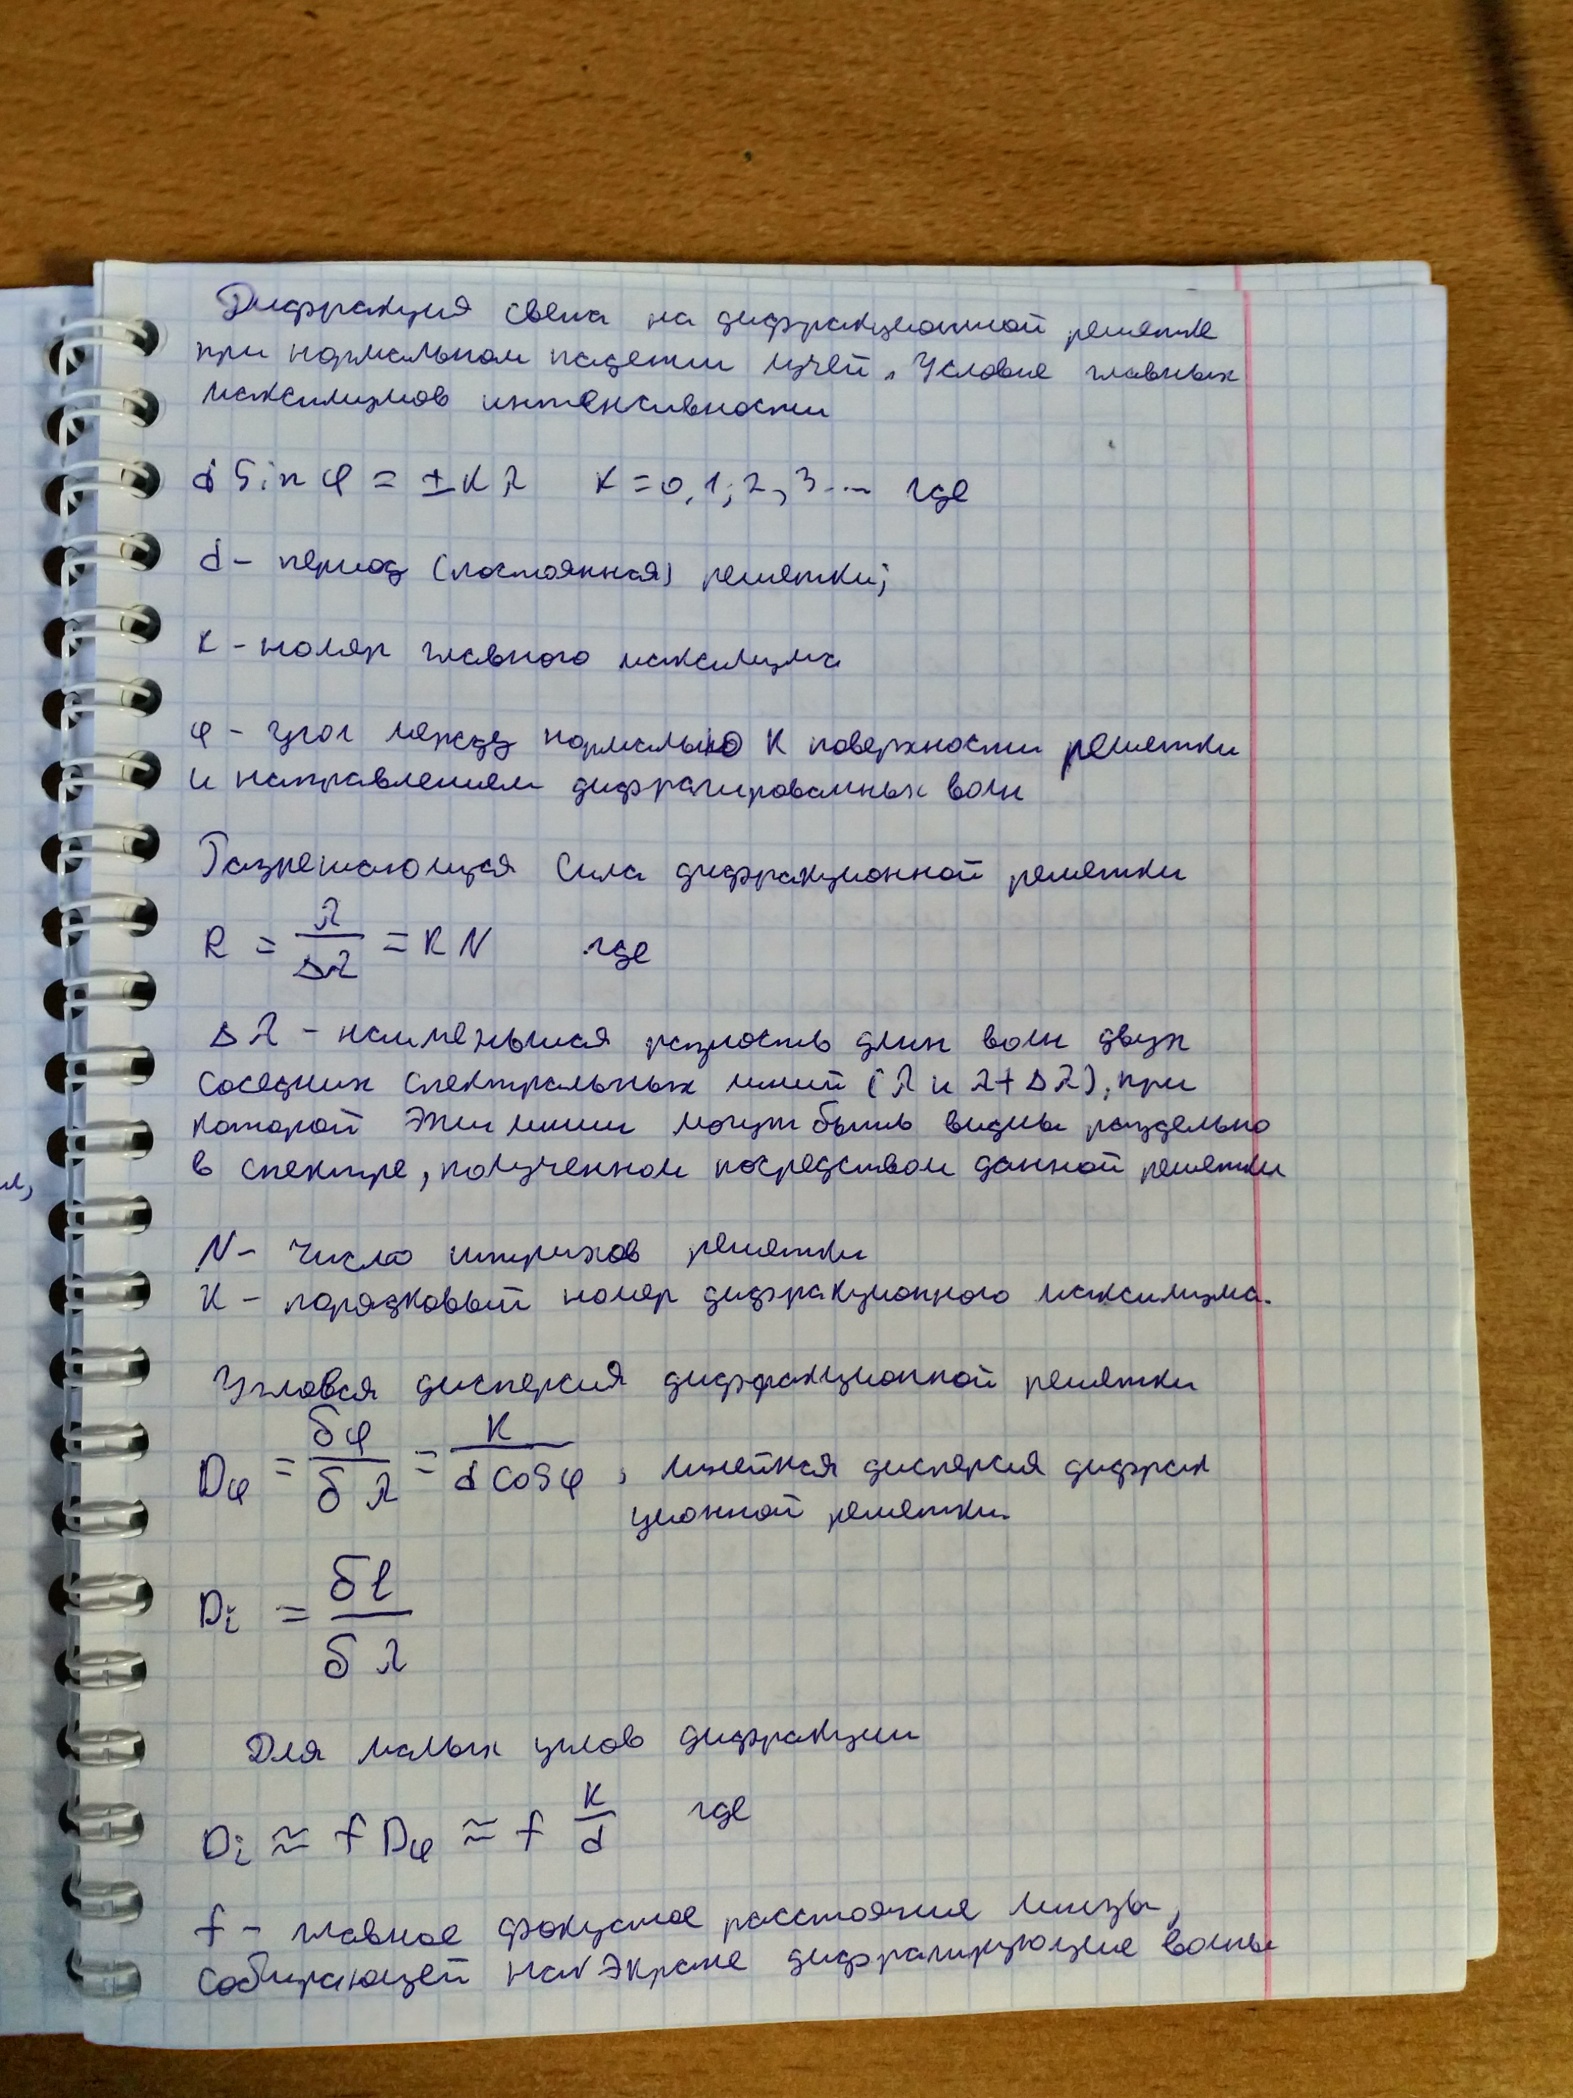 Дифракция света на дифракционной решетке
при нормальном падении лучей. Условие главных
максимумов интенсивности
d Sin φ = ±Kλ K=0,1,2,3... где
d - период (постоянная) решетки;
K - номер главного максимума
φ - угол между нормалью к поверхности решетки
и направлением дифрагированных волн
Разрешающая сила дифракционной решетки
R = λ/Δλ = KN где
Δλ - наименьшая разность длин волн двух
соседних спектральных линий (λ и λ+Δλ), при
которой эти линии могут быть видны раздельно
в спектре, полученном посредством данной решетки
N - число штрихов решетки
K - порядковый номер дифракционного максимума.
Угловая дисперсия дифракционной решетки
Dφ = δφ/δλ = K/d cosφ, линейная дисперсия дифрак
ционной решетки.
Di = δl/δλ
Для малых углов дифракции
Di ≈ f Dφ ≈ f K/d где
f - главное фокусное расстояние линзы,
собирающей на экране дифрагирующие волны